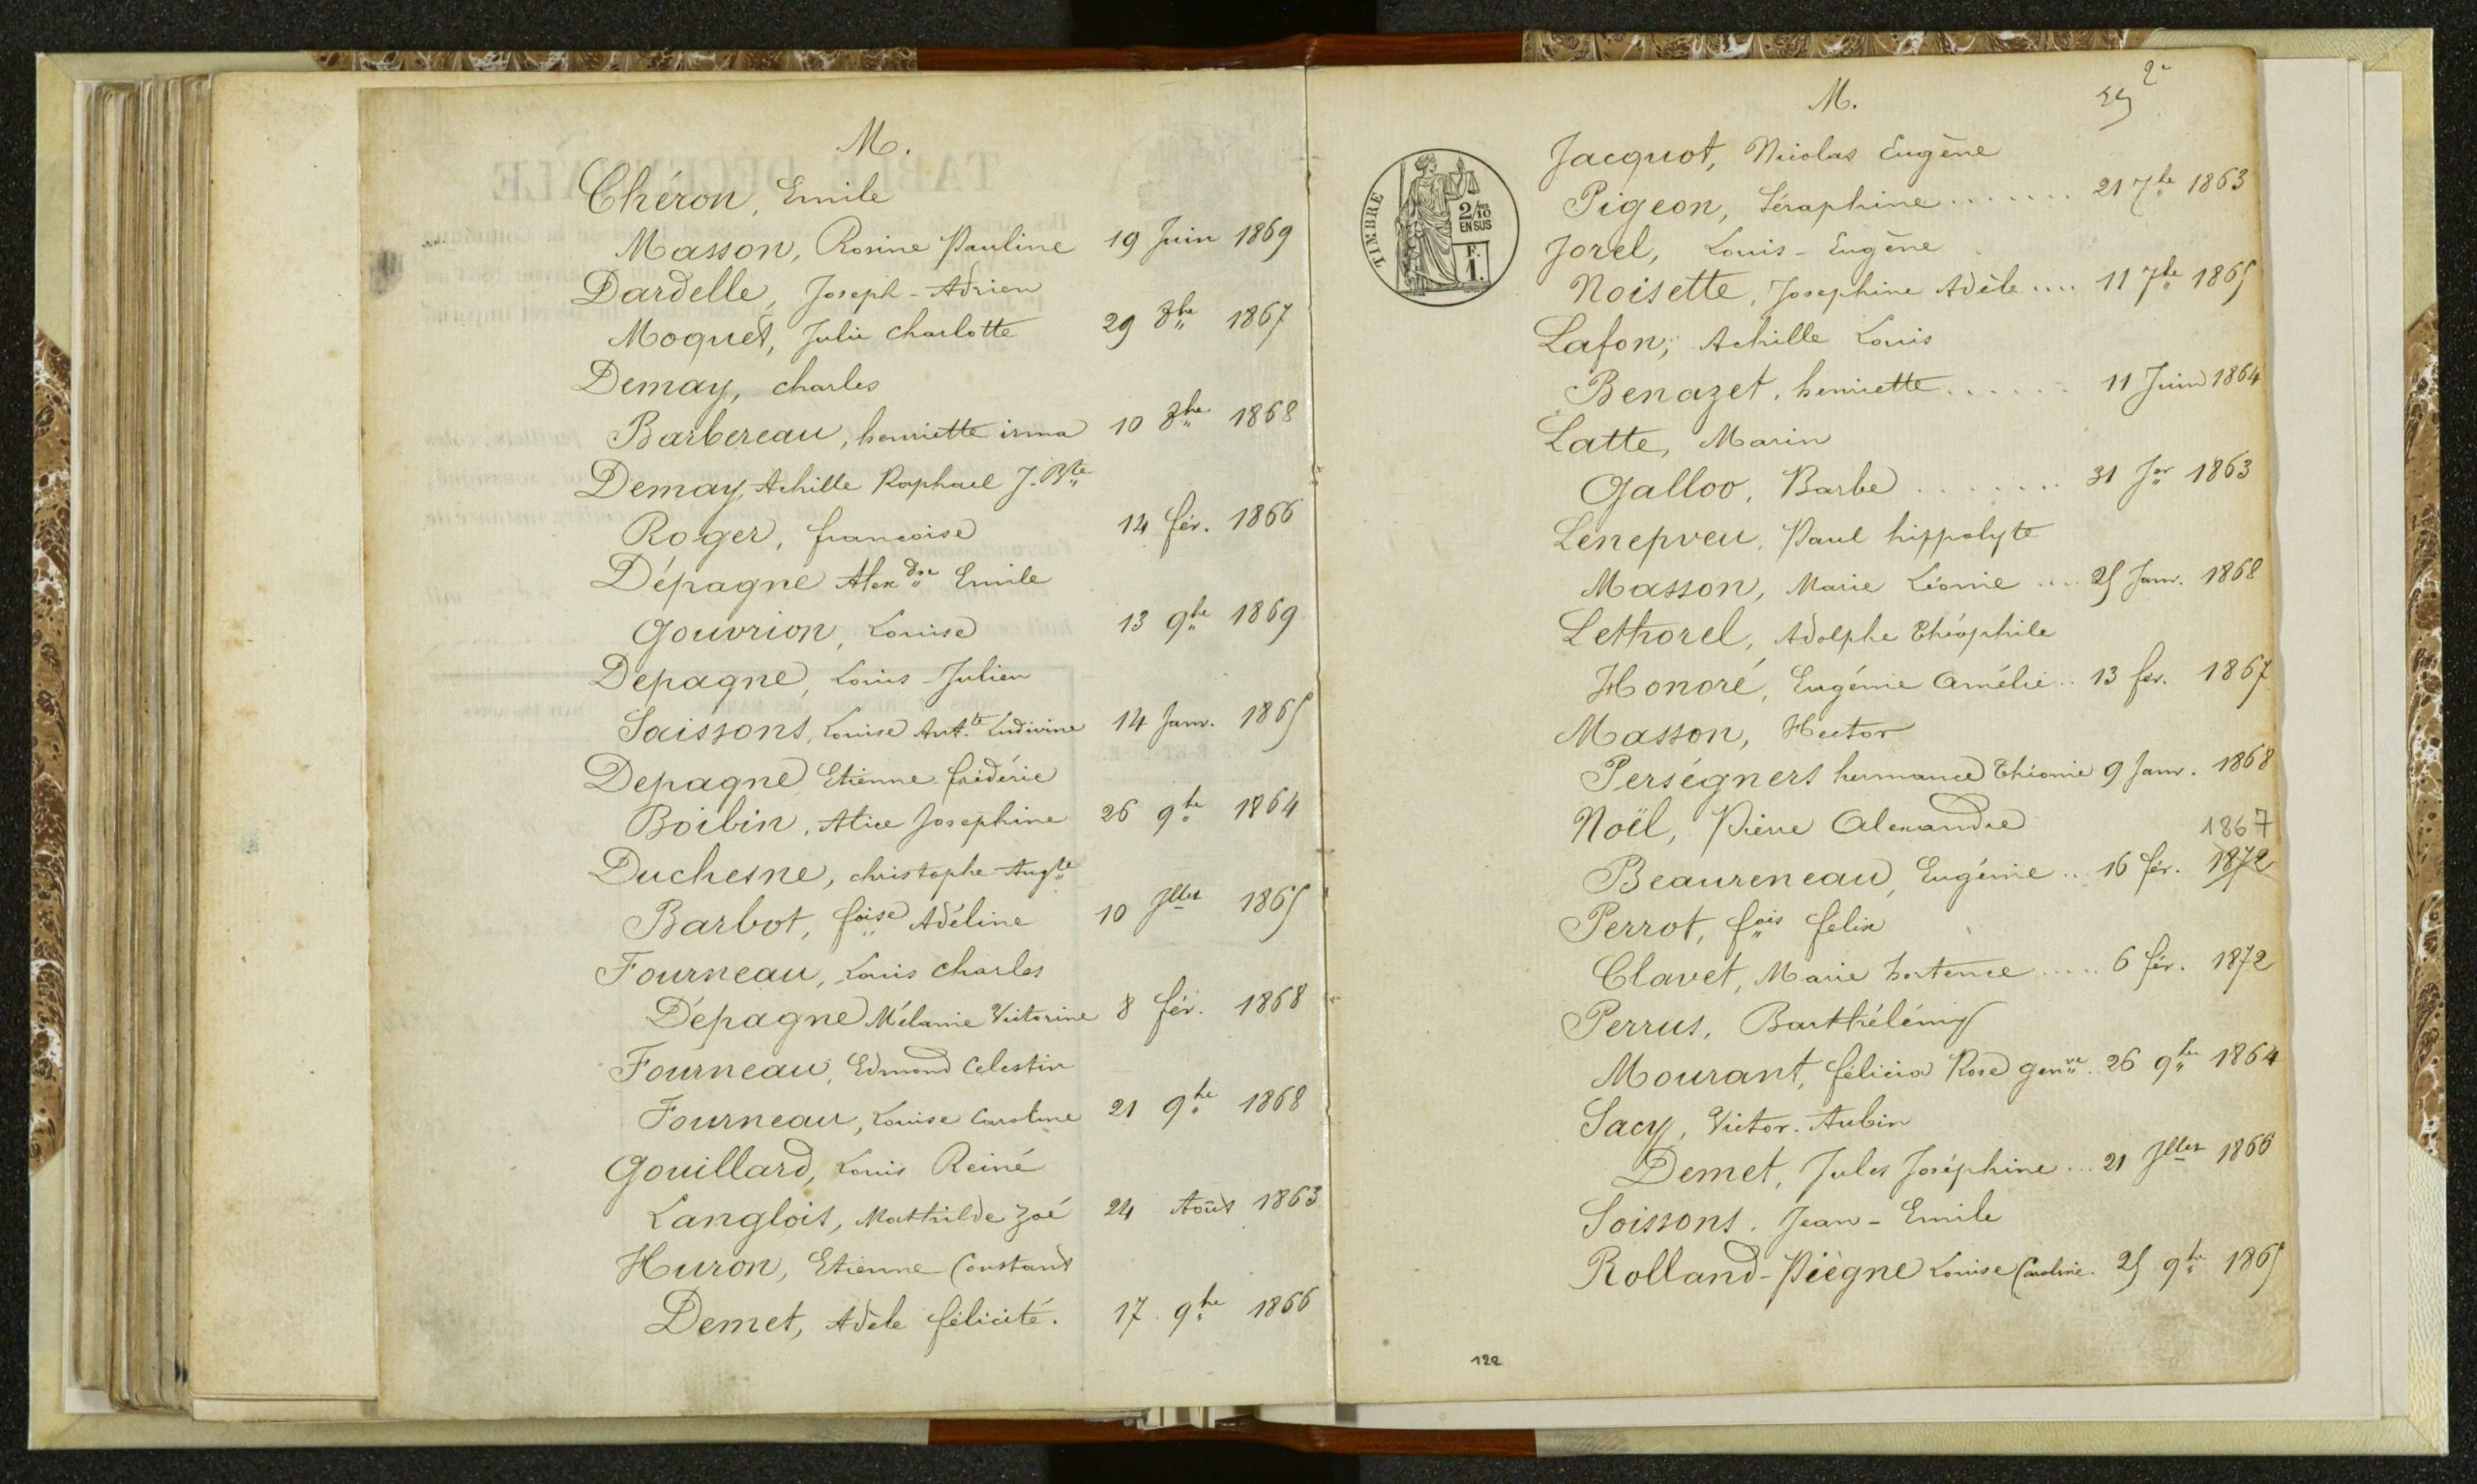 M.
Chéron, Emile
Masson, Rosine Pauline 19 Juin 1869
Dardelle, Joseph-Adrien
Moquet, Julie charlotte 29 8bre 1867
Demay, charles
Barbereau, henriette irma 10 8bre 1868
Demay, Achille Raphael J. Bte
Roger, francoise 14 fév. 1866
Dépagne Alexdre Emile
Gouvrion, Louise 13 9bre 1869
Depagne, Louis-Julien
Saissons, Louise Ant.te Ludivine 14 Janv. 1865
Depagne, Etienne frédéric
Boibin, Alice Josephine 26 9bre 1864
Duchesne, christophe Augte
Barbot, foise Adéline 10 Jllet 1865
Fourneau, Louis charles
Dépagne Mélanie Victorine 8 fév. 1868
Fourneau, Edmond Celestin
Fourneau, Louise Caroline 21 9bre 1868
Gouillard, Louis Reiné
Langlois, Mathilde Zoé 24 Août 1863
Huron, Etienne Constant
Demet, Adèle félicité. 17 9bre 1866
M.
2e
TIMBRE
2/10
EN SUS
F.
1.
Jacquot, Nicolas Eugène
Pigeon, Séraphine ....... 21 7bre 1863
Jorel, Louis-Eugène
Noisette, Josephine Adèle .... 11 7bre 1865
Lafon, Achille Louis
Benazet, henriette ...... 11 Juin 1864
Latte, Marin
Galloo, Barbe ....... 31 Jer 1863
Lenepveu, Paul hippolyte
Masson, Marie Léonie .... 25 Janv. 1868
Lethorel, Adolphe Théophile
Honoré, Eugénie Amélie .. 13 fév. 1867
Masson, Hector
Perségners hermance Théonie 9 Janv. 1868
Noël, Pierre Alexandre 1867
Beaureneau, Eugénie .. 16 fév. 1872
Perrot, fois félix
Clavet, Marie hortence ..... 6 fév. 1872
Perrus, Barthélémy
Mourant, félicia Rose genve. 26 9bre 1864
Sacy, Victor-Aubin
Demet, Jules Joséphine ... 21 Jllet 1866
Soissons, Jean-Emile
Rolland-Piègne Louise Caroline. 25 9bre 1865
122